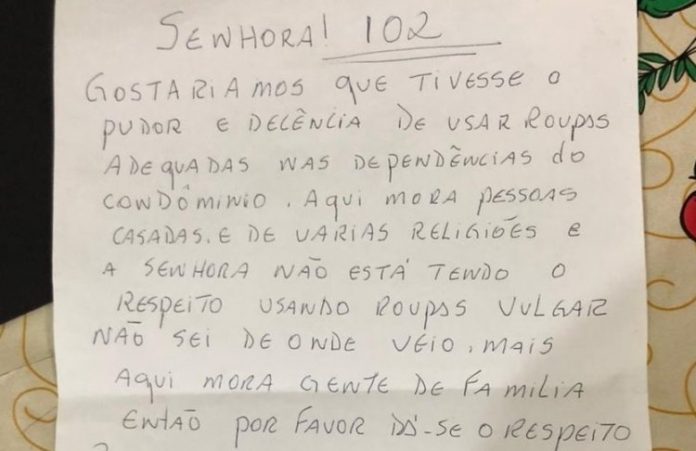 SENHORA! 102
GOSTARIAMOS QUE TIVESSE O
PUDOR E DECÊNCIA DE USAR ROUPAS
ADEQUADAS NAS DEPENDÊNCIAS DO
CONDÔMINIO. AQUI MORA PESSOAS
CASADAS. E DE VARIAS RELIGIÕES E
A SENHORA NÃO ESTÁ TENDO O
RESPEITO USANDO ROUPAS VULGAR
NÃO SEI DE ONDE VEIO, MAIS
AQUI MORA GENTE DE FAMILIA
ENTÃO POR FAVOR DÁ-SE O RESPEITO